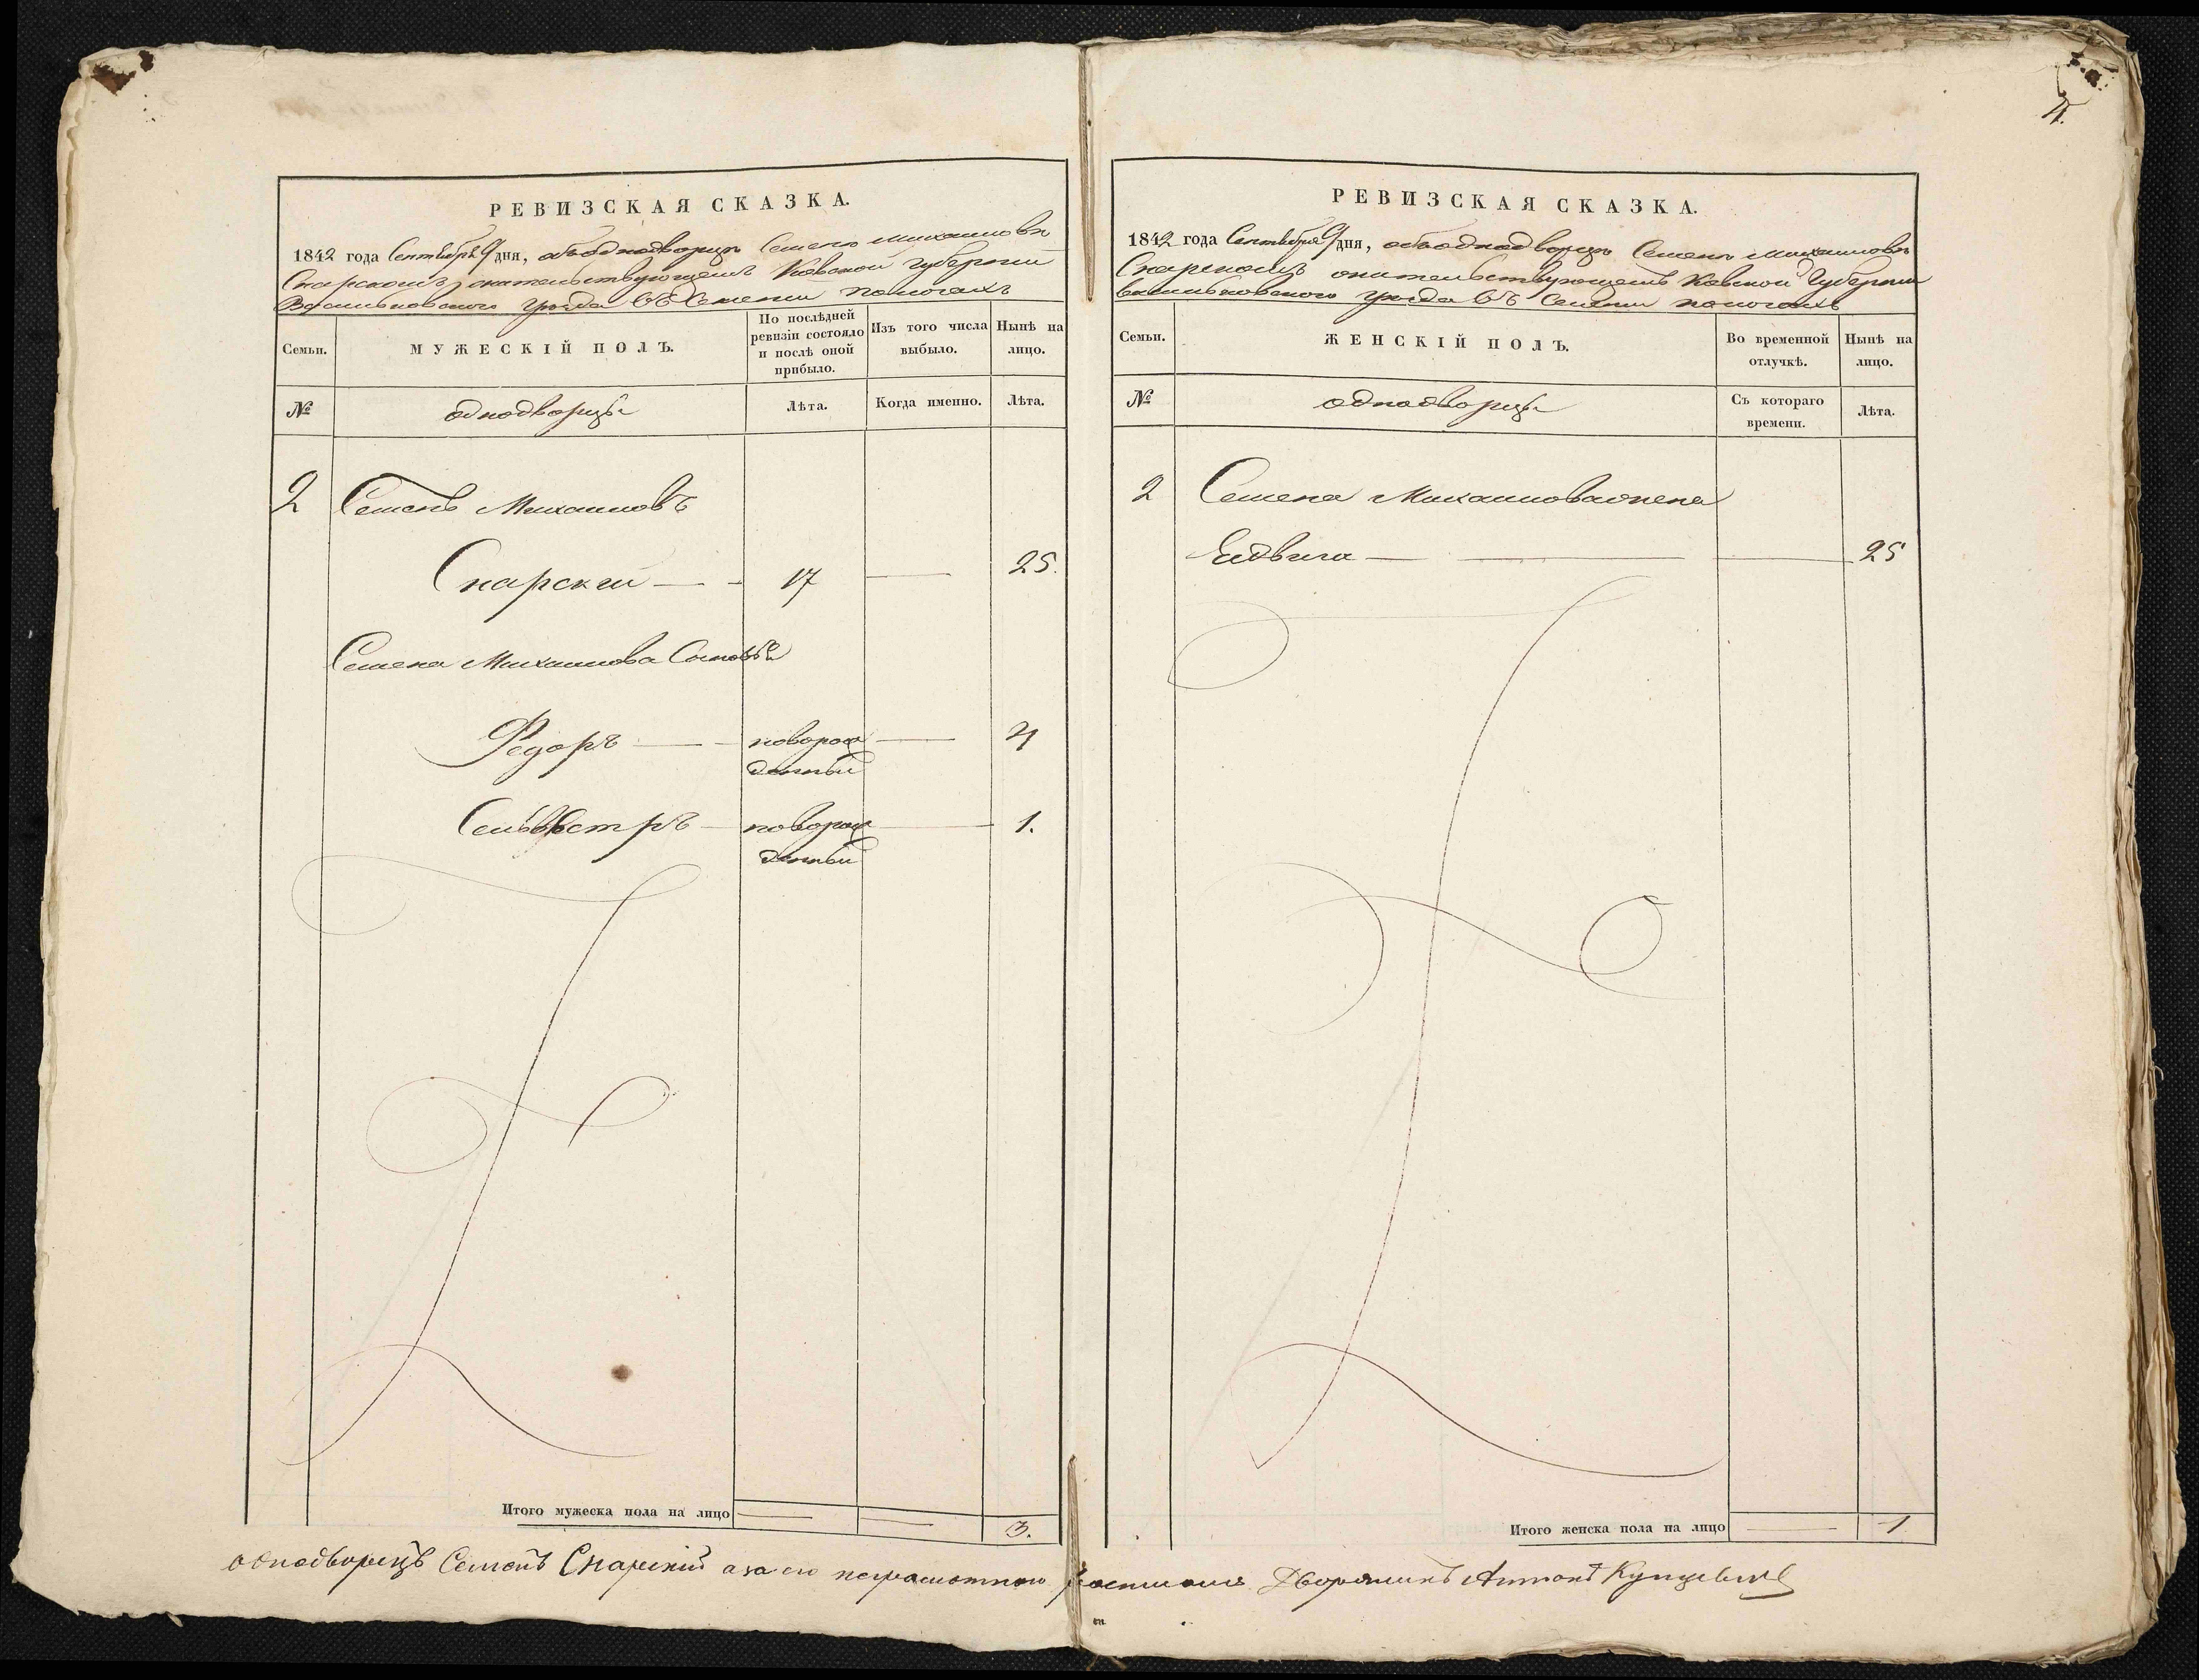 РЕВИЗСКАЯ СКАЗКА.
1842 года Сентября 9 дня, объ однодворцѣ Семенѣ Михаиловѣ
Скарскомъ жительствующемъ Кіевской Губерніи
Васильковскаго Уѣзда въ Селеніи
Семьи.
МУЖЕСКІЙ ПОЛЪ.
По послѣдней ревизіи состояло и послѣ оной прибыло.
Изъ того числа выбыло.
Нынѣ на лицо.
№
однодворцы
Лѣта.
Когда именно.
Лѣта.
2 Семенъ Михаиловъ
Скарскій — 17 — 25.
Семена Михаилова Сыновья
Федоръ — новорож — 4
денный
Сельвестръ — новорож — 1.
денный
Итого мужеска пола на лицо — — 3.
РЕВИЗСКАЯ СКАЗКА.
1842 года Сентября 9 дня, объ однодворцѣ Семенѣ Михаиловѣ
Скарскомъ жительствующемъ Кіевской Губерніи
Васильковскаго Уѣзда въ Селеніи
Семьи.
ЖЕНСКІЙ ПОЛЪ.
Во временной отлучкѣ.
Нынѣ на лицо.
№
однодворцы
Съ котораго времени.
Лѣта.
2 Семена Михаилова жена
Еидвига — — 25
Итого женска пола на лицо — 1
однодворецъ Семенъ Скарскій а за его неграмотного росписался Дворянинъ Антонъ